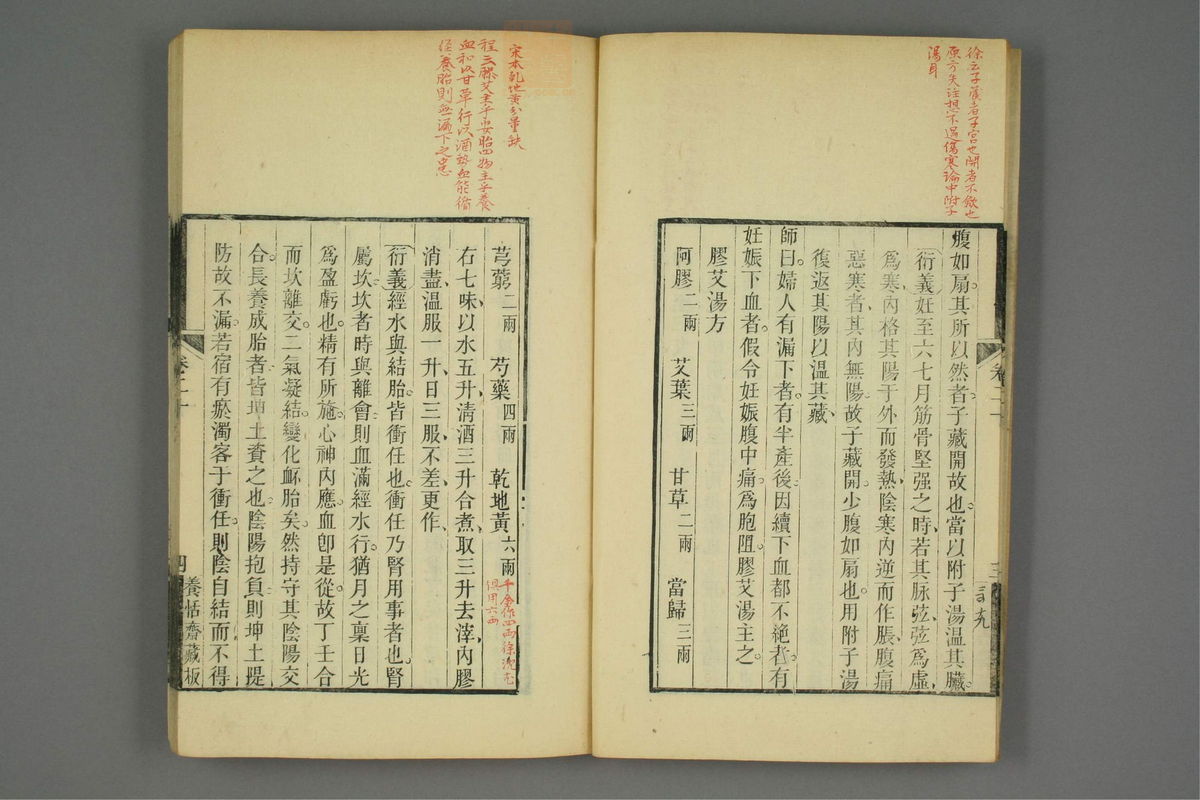 徐云子藏者子宮也開者不斂也
原方失註想不過傷寒論中附子
湯耳
腹如扇。其所以然者。子藏開故也。當以附子湯溫其臟。
衍義妊至六七月筋骨堅强之時、若其脉弦、弦爲虛、
爲寒、內格其陽于外而發熱、陰寒內逆而作脹、腹痛
惡寒者、其內無陽。故子藏開。少腹如扇也。用附子湯
復返其陽以溫其藏、
師曰。婦人有漏下者。有半產後。因續下血都不絕者。有
妊娠下血者。假令妊娠腹中痛。爲胞阻。膠艾湯主之。
膠艾湯方
阿膠二兩 艾葉三兩 甘草二兩 當歸三兩
卷二十
三
宋本乾地黃分量缺
程云膠艾主乎安胎四物主乎養
血和以甘草行以酒勢血能循
經養胎則無漏下之患
芎藭二兩 芍藥四兩 乾地黃六兩
千金作四兩徐沈尤
俱用六兩
右七味、以水五升、清酒三升合煮、取三升去滓、內膠
消盡、溫服一升、日三服、不差、更作、
衍義經水與結胎。皆衝任也。衝任乃腎用事者也。腎
屬坎。坎者時與離會。則血滿經水行。猶月之稟日光
爲盈虧也。精有所施。心神內應。血卽是從。故丁壬合
而坎離交。二氣凝結。變化衃胎矣。然持守其陰陽交
合。長養成胎者。皆坤土資之也。陰陽抱負。則坤土隄
防。故不漏。若宿有瘀濁客于衝任。則陰自結而不得
卷二十
四
養恬齋藏板